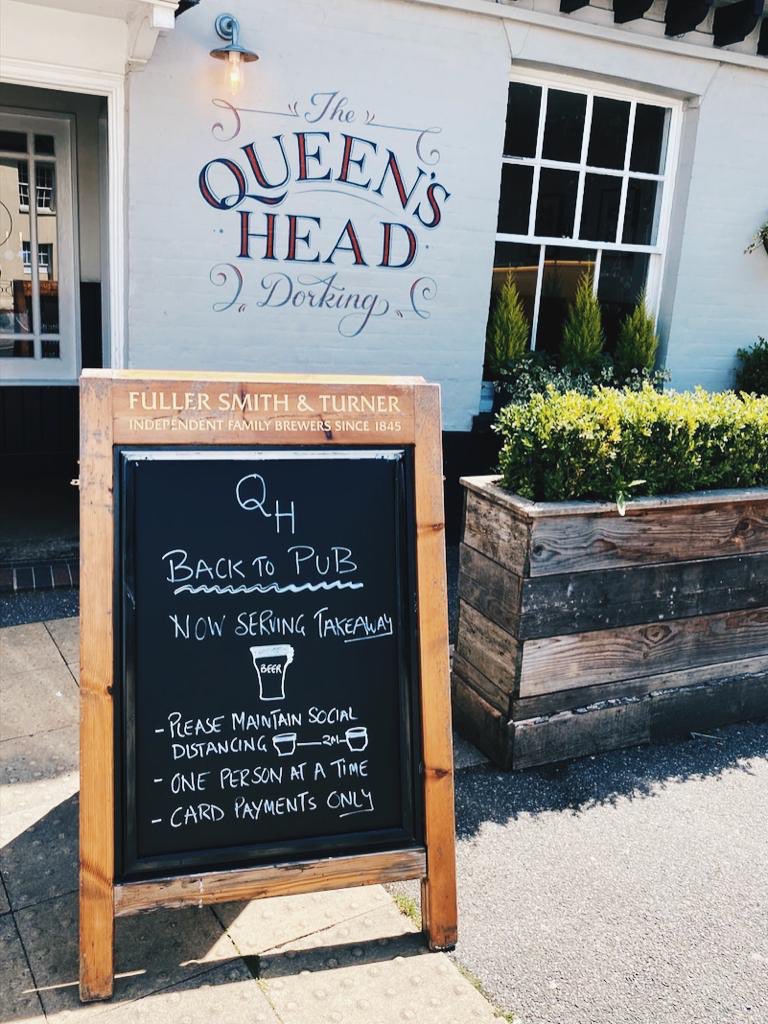 The
QUEEN'S
HEAD
Dorking
FULLER SMITH & TURNER
INDEPENDENT FAMILY BREWERS SINCE 1845
QH
BACK TO PUB
NOW SERVING TAKEAWAY
BEER
- PLEASE MAINTAIN SOCIAL
DISTANCING 2M
- ONE PERSON AT A TIME
- CARD PAYMENTS ONLY